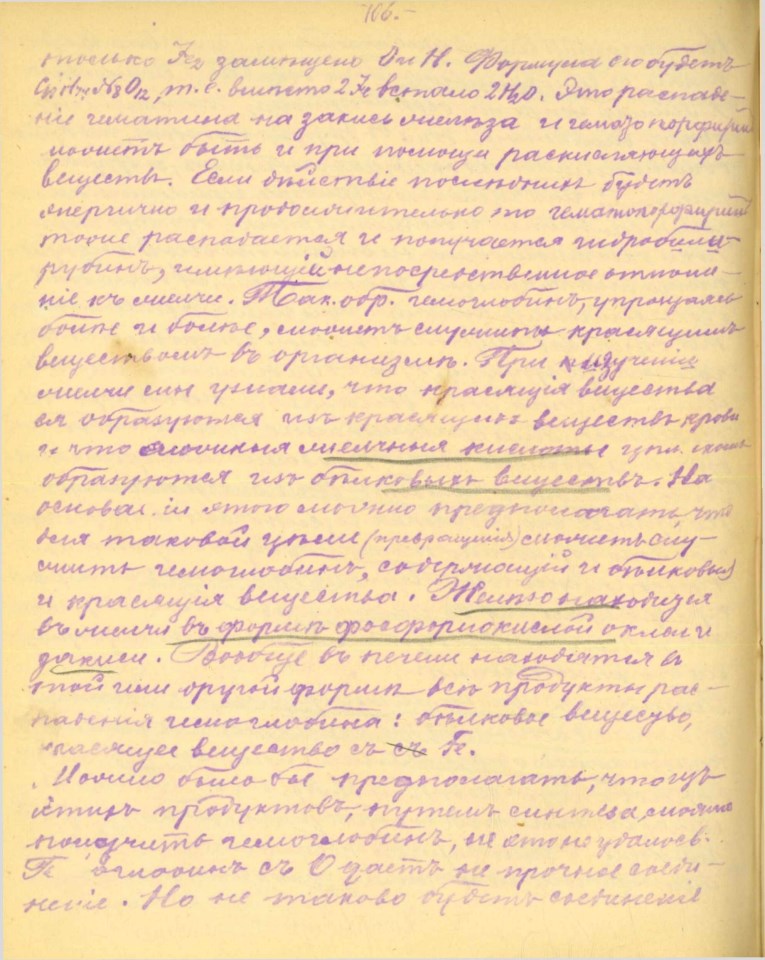 106.-
только Fe2 замѣщено O и H. Формула его будетъ
O12, т. е. вмѣсто 2 Fe встало 2H2O. Это распаде-
ніе гематина на закись желѣза и гематопорфиринъ
можетъ быть и при помощи раскисляющихъ
веществъ. Если дѣйствіе послѣднихъ будетъ
энергично и продолжительно то гематопорфиринъ
тоже распадается и получается гидробили-
рубинъ, имѣющій непосредственное отноше-
ніе къ желчи. Так. обр. гемоглобинъ, упрощаясь
болѣе и болѣе, можетъ служить красящимъ
веществомъ въ организмѣ. При изученіи
желчи мы узнали, что красящія вещества
ея образуются изъ красящихъ веществъ крови
и что желчныя кислоты
образуются изъ бѣлковыхъ веществъ. На
основаніи этого можно предполагать, что
для таковой цѣли (превращенія) можетъ слу-
жить гемоглобинъ, содержащій и бѣлковыя
и красящія вещества. Желѣзо находится
въ желчи въ формѣ фосфорнокислой окиси и
закиси. Вообще въ печени находятся въ
той или другой формѣ всѣ продукты рас-
паденія гемоглобина: бѣлковое вещество,
красящее вещество съ съ Fe.
Можно было бы предполагать, что изъ
этихъ продуктовъ, путемъ синтеза, можно
получить гемоглобинъ, но это не удалось.
съ O даетъ не прочное соеди-
неніе. Но не таково будетъ соединеніе